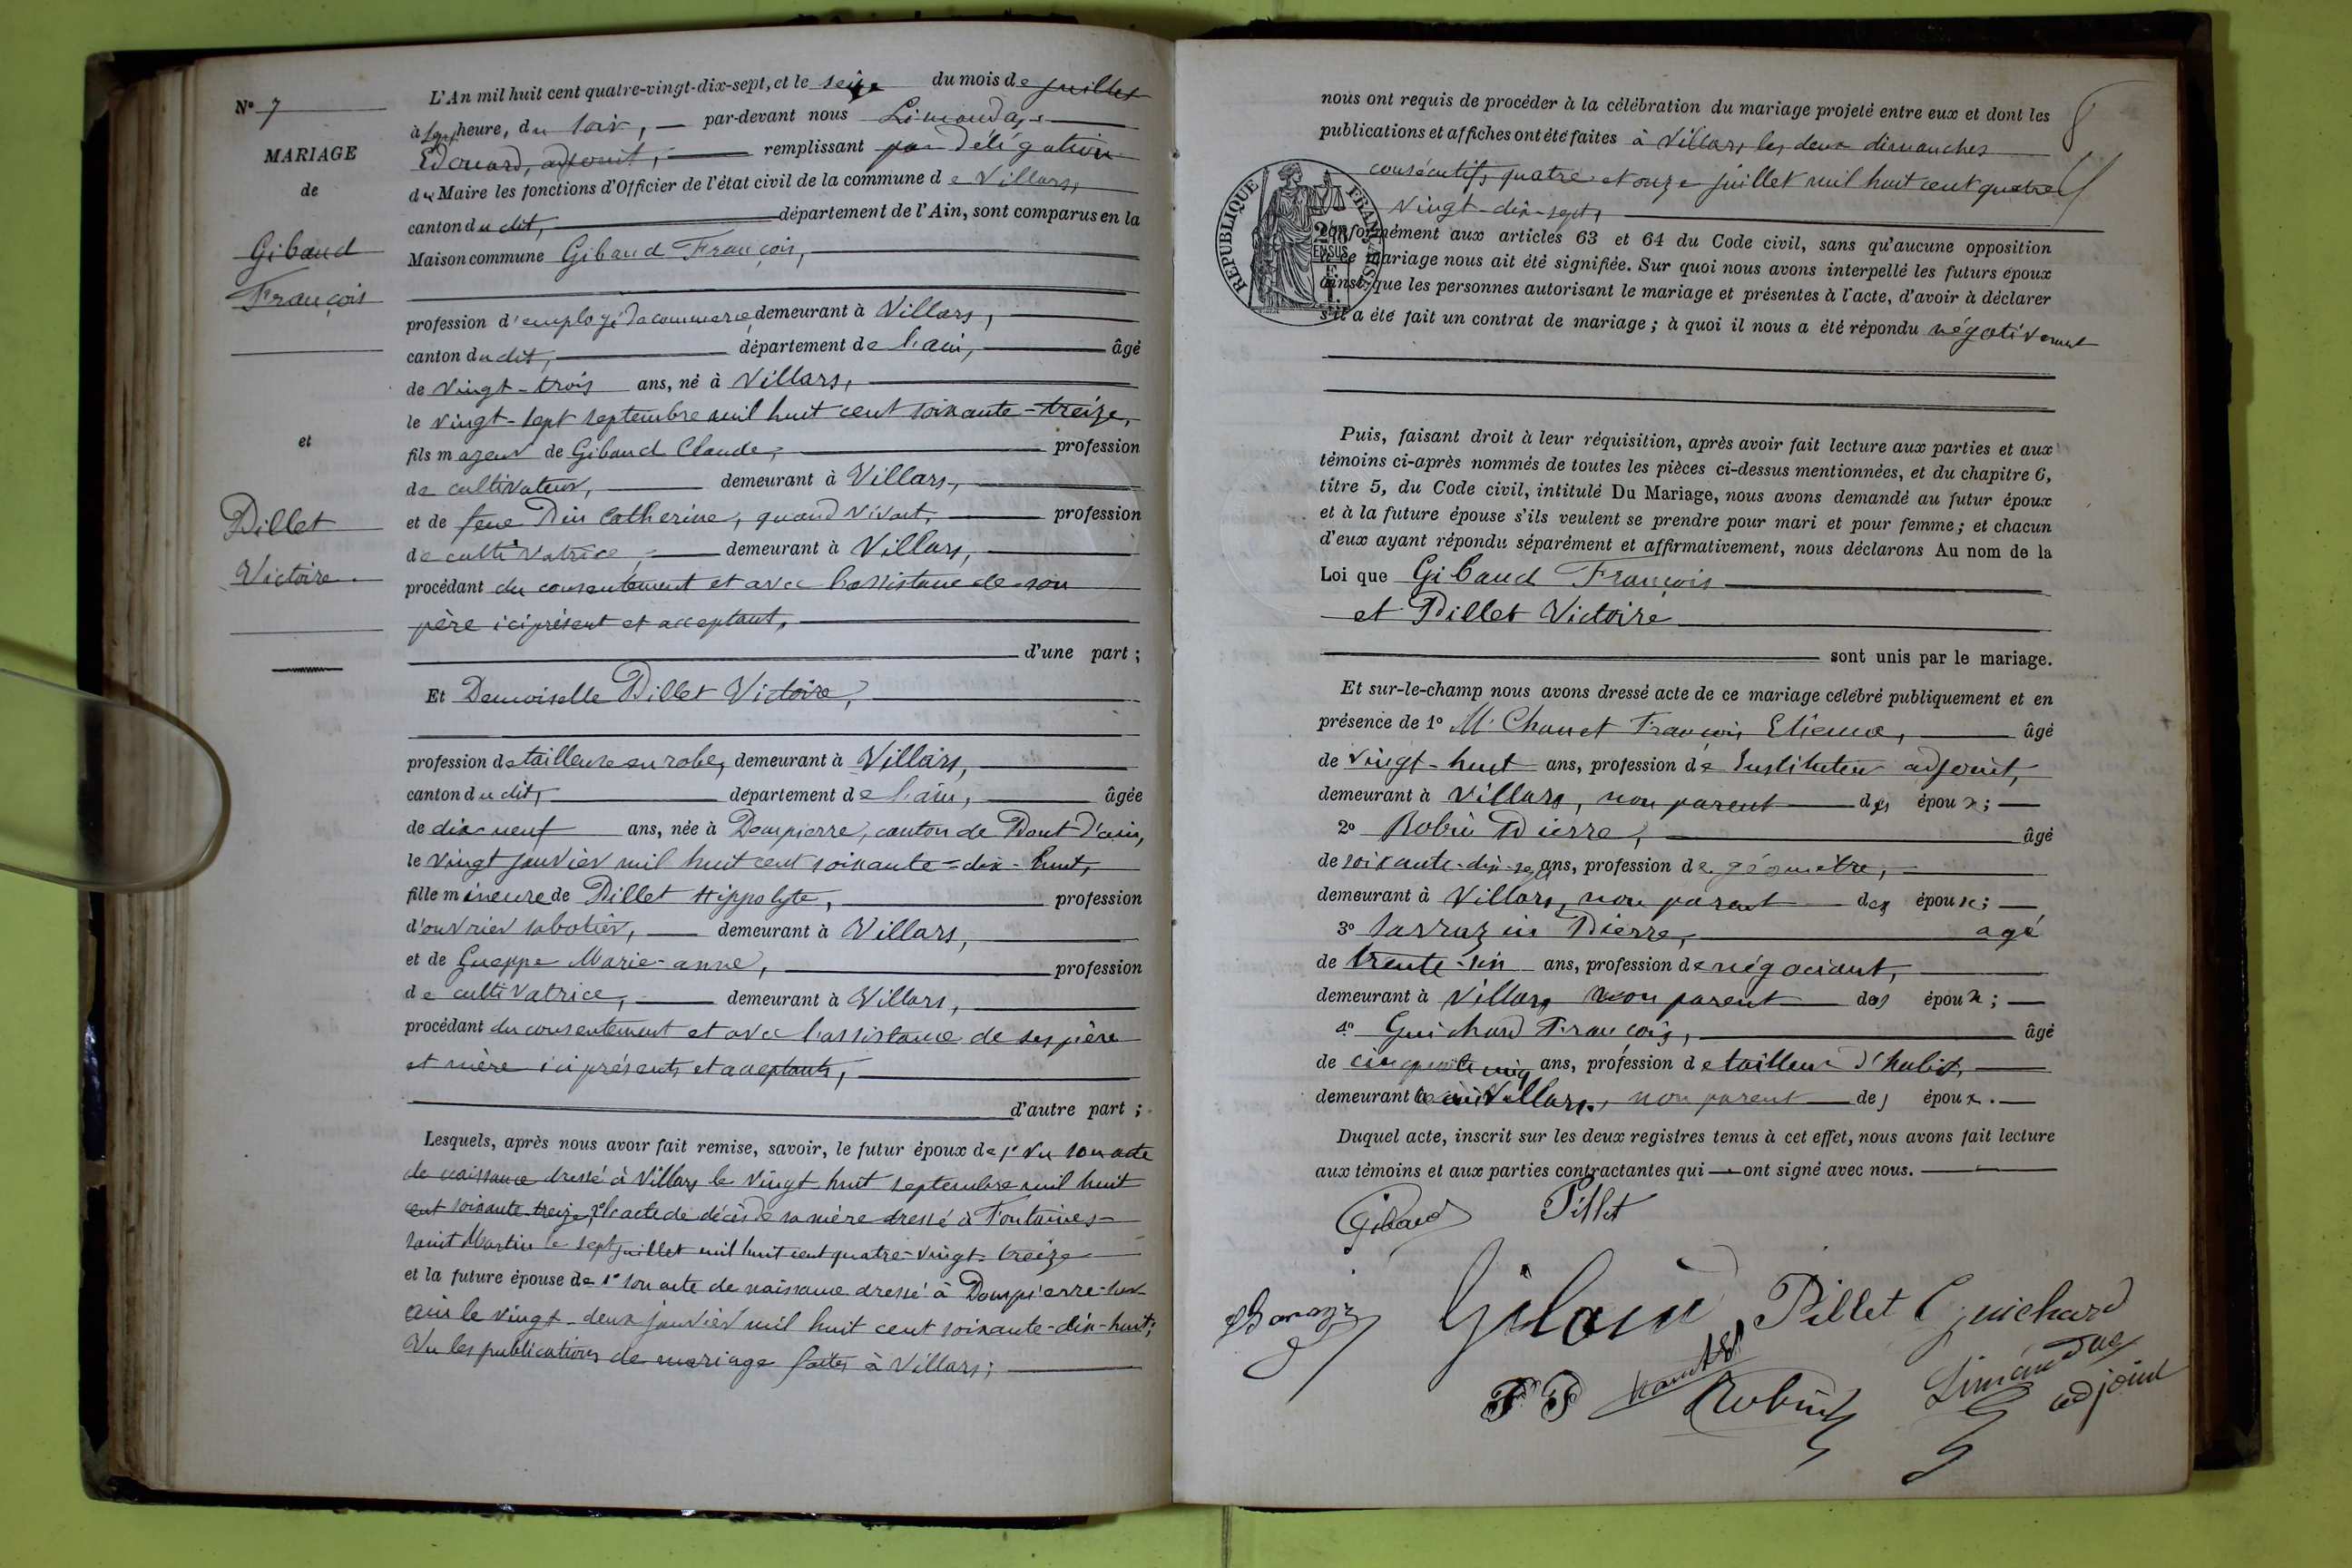 N° 7
MARIAGE
de
Gibaud
François
et
Pillet
Victoire
L'An mil huit cent quatre-vingt-dix-sept, et le seize du mois de juillet
à sept heure, du soir, par-devant nous Limandas
Edouard, adjoint, remplissant par délégation
du Maire les fonctions d'Officier de l'état civil de la commune de Villars,
canton du dit, département de l'Ain, sont comparus en la
Maison commune Gibaud François,
profession d'employé de commerce, demeurant à Villars,
canton du dit, département de l'ain, âgé
de vingt-trois ans, né à Villars,
le vingt-sept septembre mil huit cent soixante-treize,
fils majeur de Gibaud Claude, profession
de cultivateur, demeurant à Villars,
et de feue Pin Catherine, quand vivait, profession
de cultivatrice, demeurant à Villars,
procédant du consentement et avec l'assistance de son
père ici présent et acceptant,
d'une part ;
Et Demoiselle Pillet Victoire,
profession de tailleuse en robe, demeurant à Villars,
canton du dit, département de l'ain, âgée
de dix neuf ans, née à Dompierre, canton de Pont d'ain,
le vingt janvier mil huit cent soixante-dix-huit,
fille mineure de Pillet Hippolyte, profession
d'ouvrier sabotier, demeurant à Villars,
et de Gueppe Marie-anne, profession
de cultivatrice, demeurant à Villars,
procédant du consentement et avec l'assistance de ses père
et mère ici présents et acceptants,
d'autre part ;
Lesquels, après nous avoir fait remise, savoir, le futur époux de 1° Vu son acte
de naissance dressé à Villars le vingt huit septembre mil huit
cent soixante-treize, 2° l'acte de décès de sa mère dressé à Fontaines-
saint Martin le sept juillet mil huit cent quatre-vingt-treize
et la future épouse de 1° son acte de naissance dressé à Dompierre-sur-
ain le vingt-deux janvier mil huit cent soixante-dix-huit;
Vu les publications de mariage faites à Villars;
8
nous ont requis de procéder à la célébration du mariage projeté entre eux et dont les
publications et affiches ont été faites à Villars les deux dimanches
consécutifs quatre et onze juillet mil huit cent quatre
vingt-dix-sept,
RÉPUBLIQUE FRANÇAISE
conformément aux articles 63 et 64 du Code civil, sans qu'aucune opposition
à ce mariage nous ait été signifiée. Sur quoi nous avons interpellé les futurs époux
ainsi que les personnes autorisant le mariage et présentes à l'acte, d'avoir à déclarer
s'il a été fait un contrat de mariage ; à quoi il nous a été répondu négativement
Puis, faisant droit à leur réquisition, après avoir fait lecture aux parties et aux
témoins ci-après nommés de toutes les pièces ci-dessus mentionnées, et du chapitre 6,
titre 5, du Code civil, intitulé Du Mariage, nous avons demandé au futur époux
et à la future épouse s'ils veulent se prendre pour mari et pour femme ; et chacun
d'eux ayant répondu séparément et affirmativement, nous déclarons Au nom de la
Loi que Gibaud François
et Pillet Victoire
sont unis par le mariage.
Et sur-le-champ nous avons dressé acte de ce mariage célébré publiquement et en
présence de 1° M. François Etienne, âgé
de vingt-huit ans, profession de Instituteur adjoint,
demeurant à Villars, non parent des époux ;
2° Robin Pierre, âgé
de soixante-dix-sept ans, profession de géomètre,
demeurant à Villars, non parent des époux ;
3° Sarrazin Pierre, agé
de trente-six ans, profession de négociant,
demeurant à Villars non parent des époux ;
4° Guichard François, âgé
de cinquante cinq ans, profession de tailleur d'habits,
demeurant Villars, non parent des époux.
Duquel acte, inscrit sur les deux registres tenus à cet effet, nous avons fait lecture
aux témoins et aux parties contractantes qui ont signé avec nous.
Gibaud Pillet
Gibaud Pillet Guichard
P P Robin Limandas
adjoint